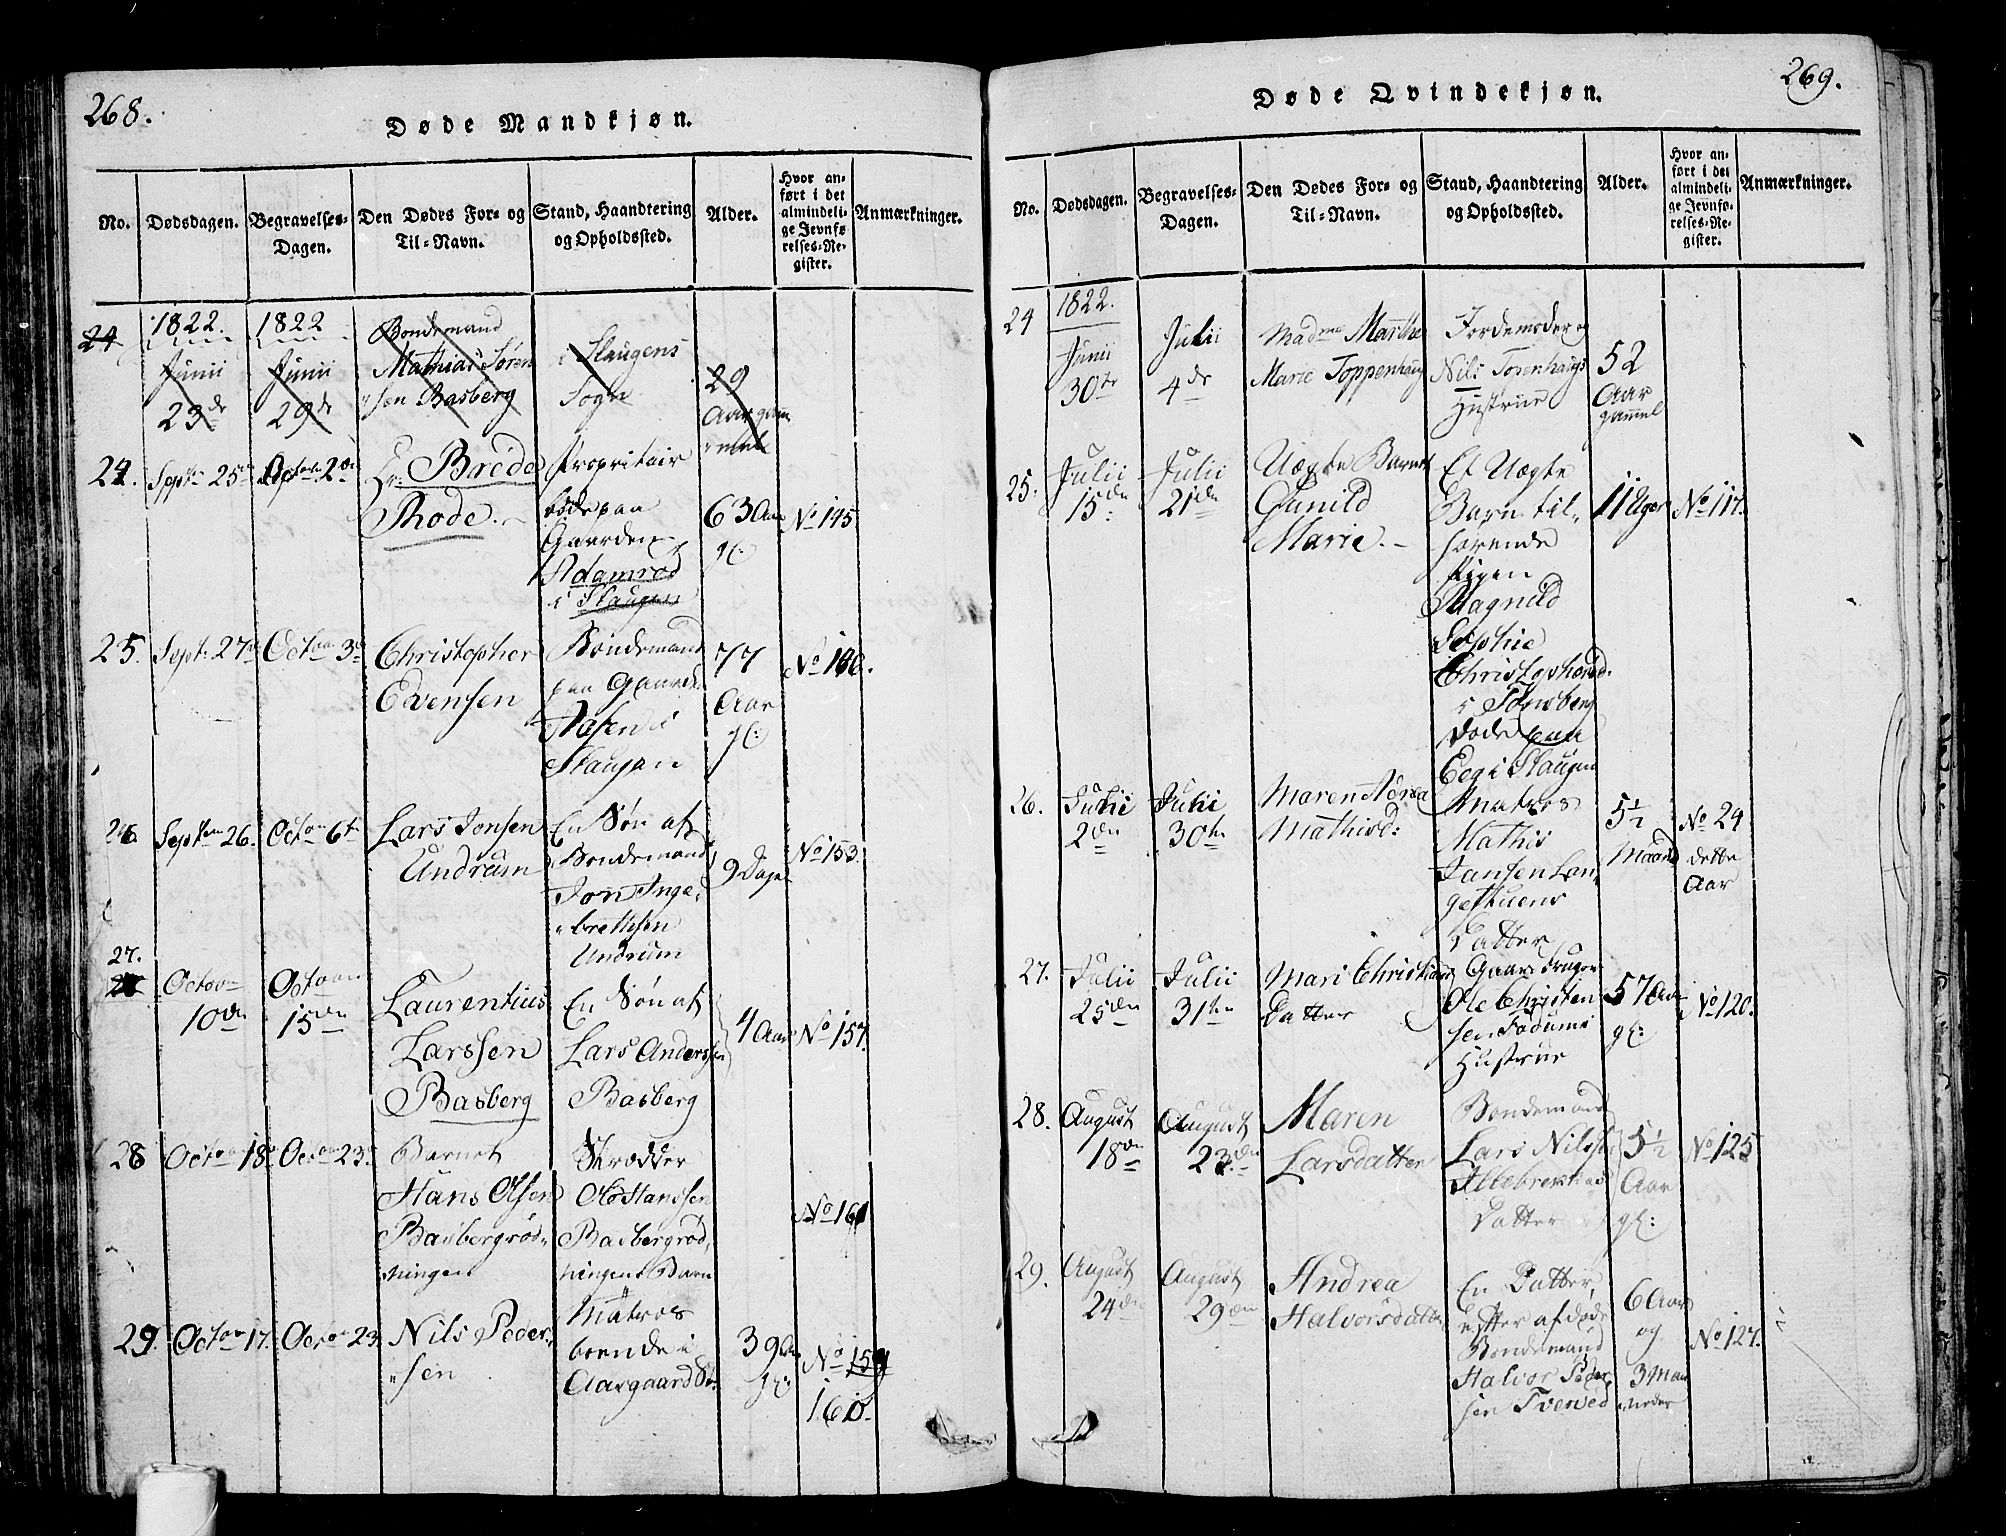 268.
Døde Mandkjøn.
No.
Dødsdagen.
Begravelses-
Dagen.
Den Dødes For- og
Til-Navn.
Stand, Haandtering
og Opholdssted.
Alder.
Hvor an-
ført i det
almindeli-
ge Jevnfø-
relses-Re-
gister.
Anmærkninger.
24
1822.
Junii
23de
1822
Junii
29de
Bondemand
Mathias Søren
sen Basberg
i Slaugens
Sogn
29
Aar gam
mel
24.
Septr 25de
Octobr 2de
Hr: Brede
Rode.
Propritair
bode paa
Gaarden
Adamrød
i Slaugen
63 Aar
gl:
No 145
25.
Septr 27de
Octobr 3de
Christopher
Evensen
Bondemand
paa Gaarde
Aasen i
Slaugen
77
Aar
gl:
No 146.
26
Septem 26.
Octobr 6te
Lars Jonsen
Undrum
En Søn af
Bondemand
Jon Inge,
brethsen
Undrum
9 Dage
No 153.
27.
Octobr
10de
Octobr
15de
Laurentius
Larssen
Basberg
En Søn af
Lars Anderssen
Basberg
4 Aar
No 157.
28
Octobr 18
Octobr 23.
Barnet
Hans Olsen
Basbergrød,
ningen
Skrædder
Ole Hanssen
Basbergrød,
ningens Barn
No 161
29.
Octobr 17.
Octobr 23
Nils Peder,
sen
Matros
boende i
Aasgaard
39 Aar
gl:
No 159
160.
269.
Døde Qvindekjøn.
No.
Dødsdagen.
Begravelses-
Dagen.
Den Dødes For- og
Til-Navn.
Stand, Haandtering
og Opholdssted.
Alder.
Hvor an-
ført i det
almindeli-
ge Jevnfø-
relses-Re-
gister.
Anmærkninger.
24
1822.
Junii
30te
Julii
4de
Madme Marthe
Marie Toppenhaug
Jordemoder og
Nils Torenhaugs
Hustrue
52
Aar
gammel
25.
Julii
15de
Julii
21de
Uægte Barnet
Gunild
Marie.
Et Uægte
Barn til,
hørende
Pigen
Magnild
Sophie
Christophersd.
i Tønsberg
døde paa
Eeg i Slaugen
11 Uger
No 117.
26.
Julii
2den
Julii
30te
Maren Andrea
Mathisd:
Matros
Mathis
Jansen Lan,
gestuens
Datter
5½
Maand
No 24
dette
Aar
27.
Julii
25den
Julii
31te
Mari Christians
Datter
Gaardbruger
Ole Christen
sen Fadums
Hustrue
57 Aar
gl:
No 120.
28.
August
18den
August
23den
Maren
Larsdatter
Bondemand
Lars Nilssen
Illebrekkes
Datter
5½
Aar
gl:
No 125
29.
August
24de
August
29den
Andrea
Halvorsdatter
En Datter
efter afdøde
Bondemand
Halvor Peder
sen Tverved
6 Aar
og
3 Maa
neder
No 127.